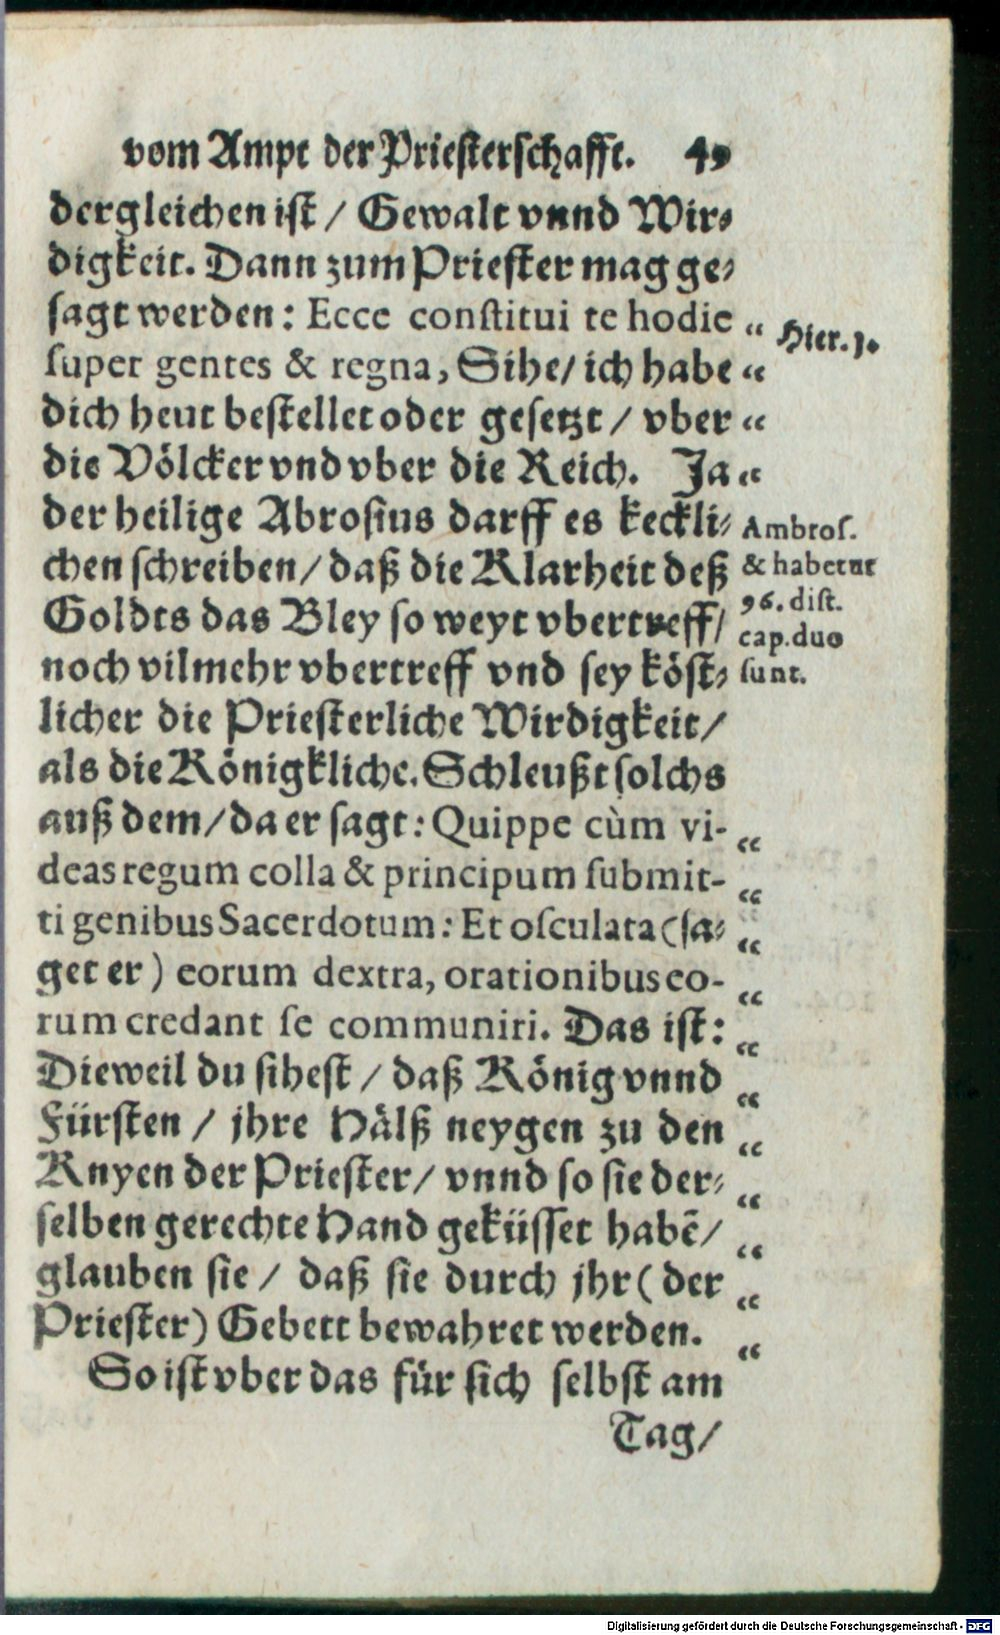 vom Ampt der Priesterschafft. 49
dergleichen ist / Gewalt vnnd Wir⸗
digkeit. Dann zum Priester mag ge⸗
sagt werden: Ecce conſtitui te hodie “ Hier. 1.
ſuper gentes & regna, Sihe/ ich habe “
dich heut bestellet oder gesetzt / vber “
die Völcker vnd vber die Reich. Ja “
der heilige Abrosius darff es keckli⸗ Ambroſ.
chen schreiben/ daß die Klarheit deß & habetur
Goldts das Bley so weyt vbertreff/ 96. diſt.
cap. duo
noch vilmehr vbertreff vnd sey köst⸗ ſunt.
licher die Priesterliche Wirdigkeit/
als die Königkliche. Schleußt solchs
auß dem/ da er sagt: Quippe cùm vi- “
deas regum colla & principum ſubmit- “
ti genibus Sacerdotum: Et oſculata (sa⸗ “
get er) eorum dextra, orationibus eo- “
rum credant ſe communiri. Das ist: “
Dieweil du sihest / daß König vnnd “
Fürsten / jhre Hälß neygen zu den “
Knyen der Priester/ vnnd so sie der⸗ “
selben gerechte Hand geküsset habē/ “
glauben sie / daß sie durch jhr (der “
Priester) Gebett bewahret werden. “
So ist vber das für sich selbst am
Tag/
Digitalisierung gefördert durch die Deutsche Forschungsgemeinschaft - DFG